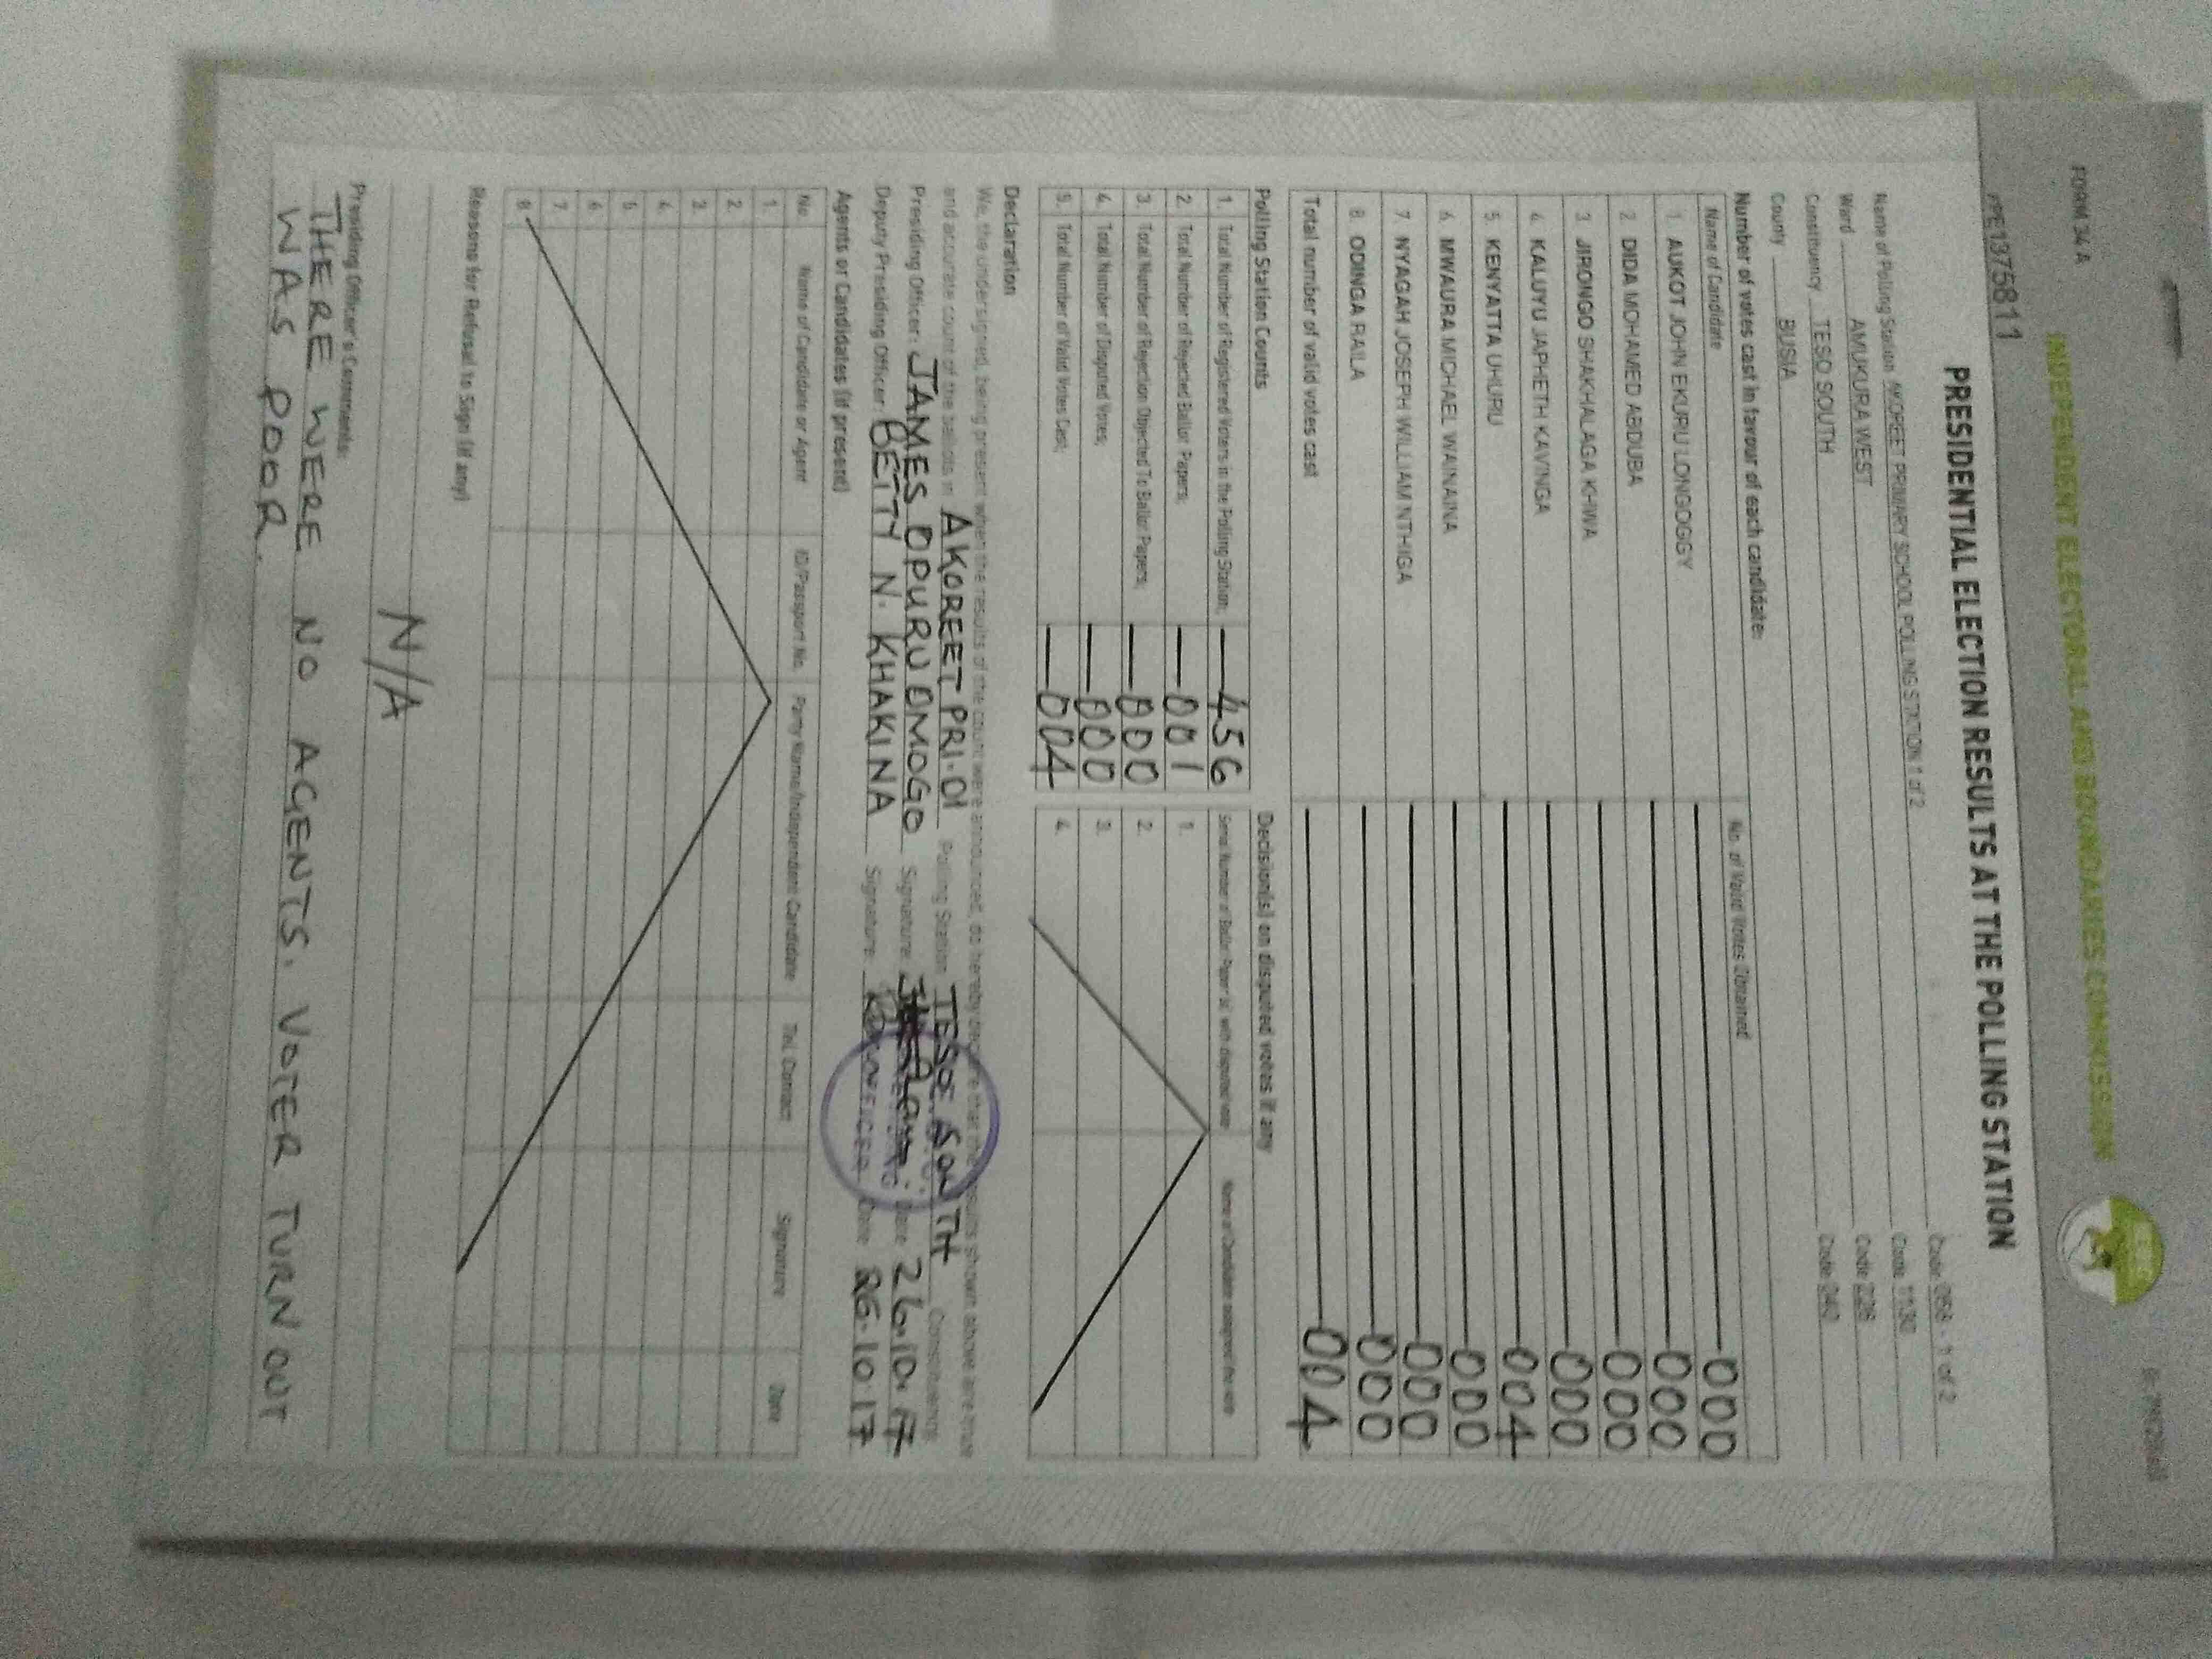 FORM 34 A
INDEPENDENT ELECTORAL AND BOUNDARIES COMMISSION
PE1375811
PRESIDENTIAL ELECTION RESULTS AT THE POLLING STATION
Name of Polling Station AKOREET PRIMARY SCHOOL POLLING STATION 1 of 2 Code 058 - 1 of 2
Ward AMUKURA WEST Code 1130
Constituency TESO SOUTH Code 228
County BUSIA Code 040
Number of votes cast in favour of each candidate:
Name of Candidate No. of Valid Votes Obtained
1. AUKOT JOHN EKURU LONGOGGY 000
2. DIDA MOHAMED ABDUBA 000
3. JIRONGO SHAKHALAGA KHWA 000
4. KALUYU JAPHETH KAVINGA 000
5. KENYATTA UHURU 004
6. MWAURA MICHAEL WAINAINA 000
7. NYAGAH JOSEPH WILLIAM NTHIGA 000
8. ODINGA RAILA 000
Total number of valid votes cast 004
Polling Station Counts
1. Total Number of Registered Voters in the Polling Station; 456
2. Total Number of Rejected Ballot Papers; 001
3. Total Number of Rejection Objected To Ballot Papers; 000
4. Total Number of Disputed Votes; 000
5. Total Number of Valid Votes Cast; 004
Decision(s) on disputed votes if any
Serial Number of Ballot Paper (s) with disputed vote Name of Candidate assigned the vote
1.
2.
3.
4.
Declaration
We, the undersigned, being present when the results of the count were announced, do hereby declare that the results shown above are true
and accurate count of the ballots in AKOREET PRI-01 Polling Station TESO SOUTH Constituency
Presiding Officer: JAMES OPURU OMOGO Signature Date 26.10.17
Deputy Presiding Officer: BETTY N. KHAKINA Signature Date 26.10.17
Agents or Candidates (if present)
No. Name of Candidate or Agent ID/Passport No. Party Name/Independent Candidate Tel. Contact Signature Date
1.
2.
3.
4.
5.
6.
7.
8.
Reasons for Refusal to Sign (if any)
N/A
Presiding Officer's Comments:
THERE WERE NO AGENTS. VOTER TURN OUT
WAS POOR.